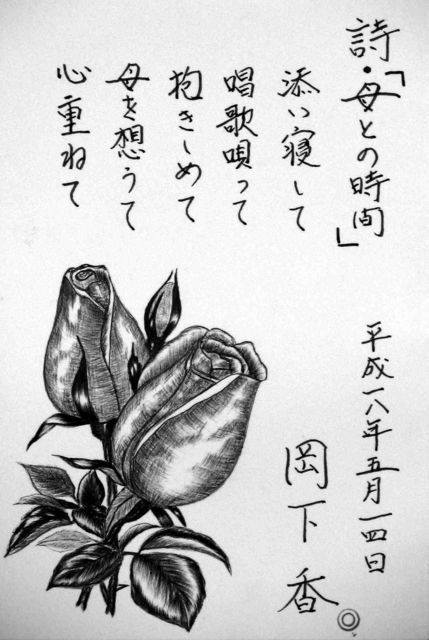 詩・「母との時間」
添い寝して
唱歌唄って
抱きしめて
母を想うて
心重ねて
平成一八年五月一四日
岡下香